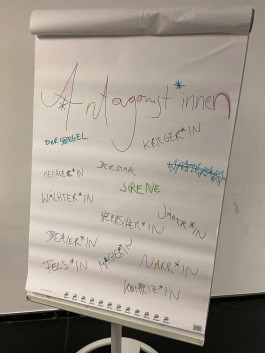 Antagonist*innen
DER SPIEGEL
KRIEGER*IN
HENKER*IN
DER STAR
SIRENE
WÄCHTER*IN
HERRSCHER*IN
JÄGER*IN
DEALER*IN
MAGIER*IN
NARR*IN
FELS*IN